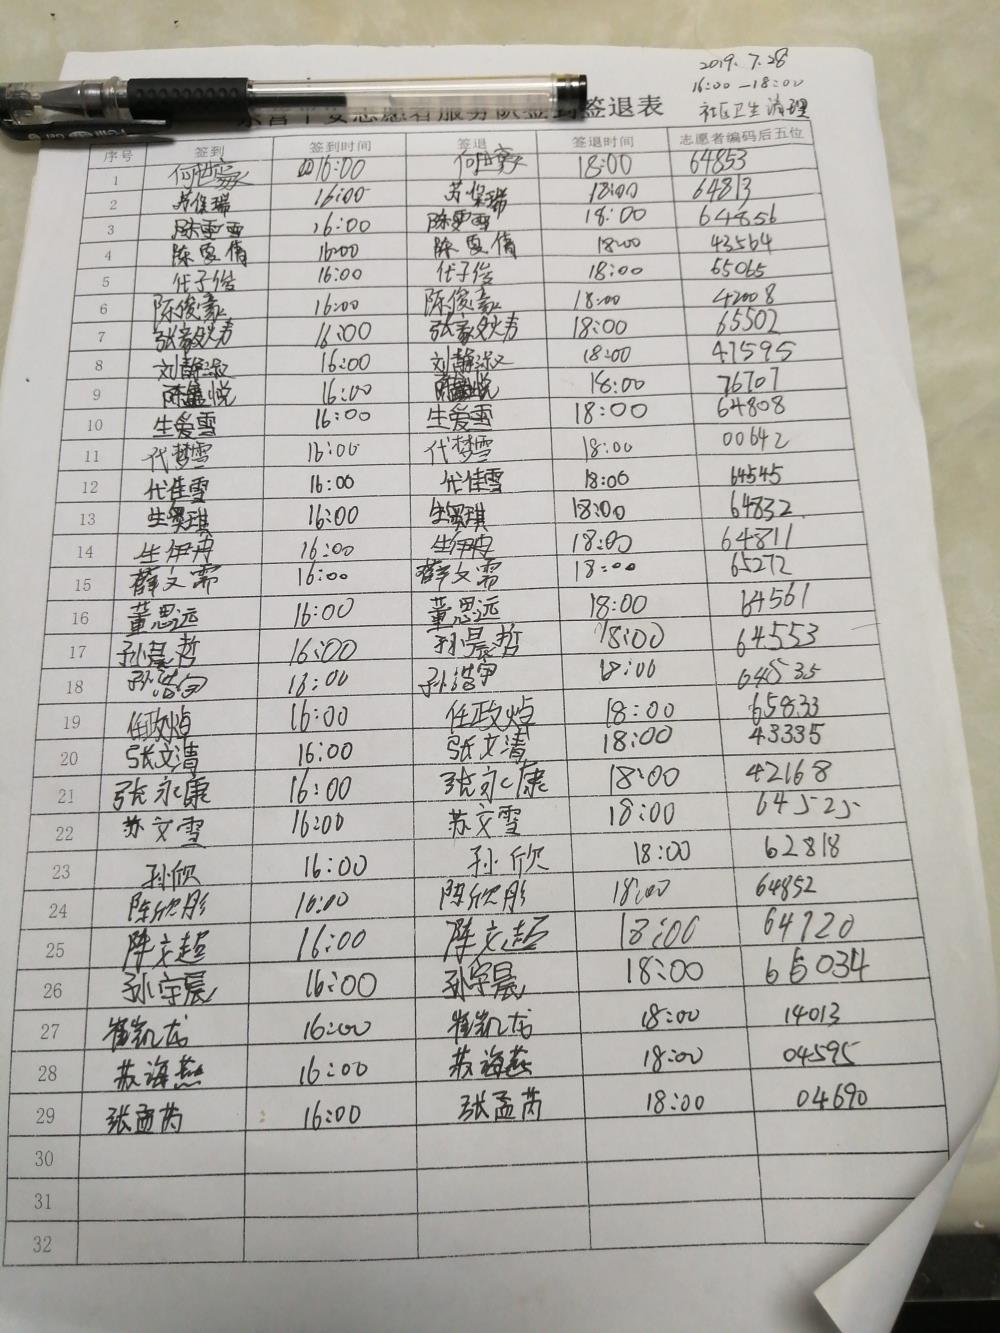 2019.7.28
16:00—18:00
社区卫生清理
志愿者服务队签到签退表
序号 签到 签到时间 签退 签退时间 志愿者编码后五位
1 何世豪 16:00 何世豪 18:00 64853
2 苏保瑞 16:00 苏保瑞 18:00 64813
3 陈雯雪 16:00 陈雯雪 18:00 64856
4 陈夏倩 16:00 陈夏倩 18:00 43564
5 代子俊 16:00 代子俊 18:00 65065
6 陈俊豪 16:00 陈俊豪 18:00 42008
7 张 16:00 张 18:00 65502
8 刘静淑 16:00 刘静淑 18:00 47595
9 陈 悦 16:00 陈 悦 18:00 76707
10 生爱雪 16:00 生爱雪 18:00 64808
11 代梦雪 16:00 代梦雪 18:00 00642
12 代佳雪 16:00 代佳雪 18:00 64545
13 生奕琪 16:00 生奕琪 18:00 64832
14 生伊冉 16:00 生伊冉 18:00 64811
15 薛文需 16:00 薛文需 18:00 65272
16 董思远 16:00 董思远 18:00 64561
17 孙晨哲 16:00 孙晨哲 18:00 64553
18 孙浩宇 18:00 孙浩宇 18:00 64535
19 任政焯 16:00 任政焯 18:00 65833
20 张文清 16:00 张文清 18:00 43335
21 张永康 16:00 张永康 18:00 42168
22 苏文雪 16:00 苏文雪 18:00 64525
23 孙欣 16:00 孙欣 18:00 62818
24 陈欣彤 16:00 陈欣彤 18:00 64852
25 陈文超 16:00 陈文超 18:00 64720
26 孙宇晨 16:00 孙宇晨 18:00 65034
27 崔凯龙 16:00 崔凯龙 18:00 14013
28 苏海燕 16:00 苏海燕 18:00 04595
29 张孟芮 16:00 张孟芮 18:00 04690
30
31
32